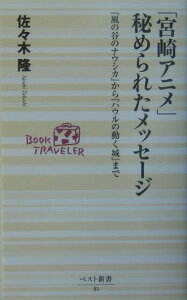 「宮崎アニメ」
秘められたメッセージ
『風の谷のナウシカ』から『ハウルの動く城』まで
佐々木 隆
Sasaki Takashi
BOOK
TRAVELER
ベスト新書
83